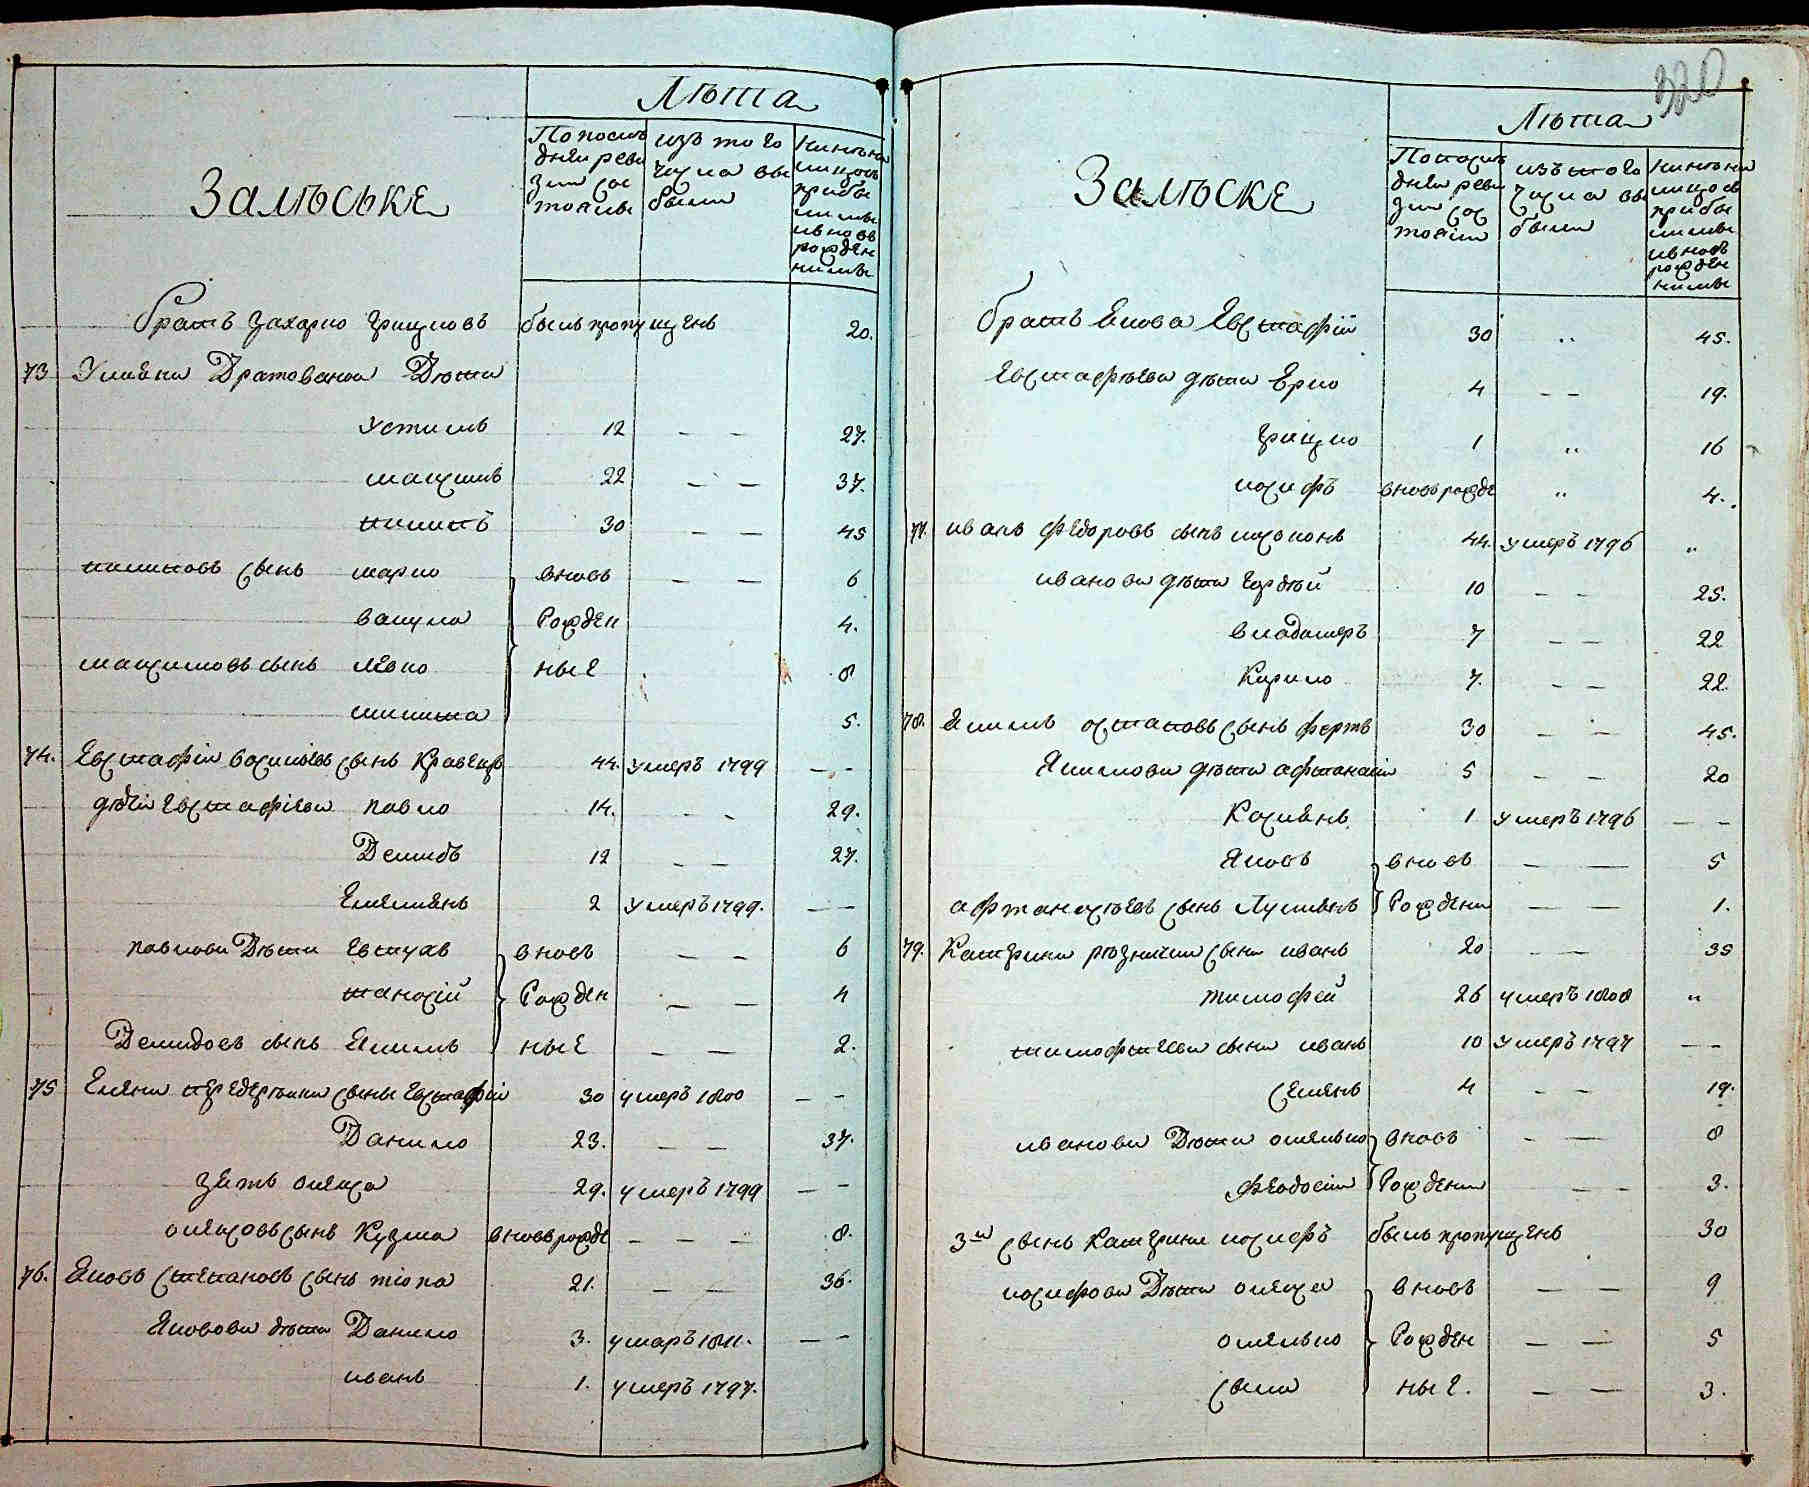 Залѣське
Лѣта
По послѣ
дней реви
зіи сос
тояли
изъ того
числа вы
были
Нинѣ на
лицо съ
прибы
лими
и вновь
рожден
ними
братъ Захарко Грицковъ былъ пропущенъ 20.
73 Уляни Дратованои Дѣти
Устимъ 12 — — 27.
максимъ 22 — — 37.
пилипъ 30 — — 45
пилиповъ сынъ марко вновь — — 6
вакула Рожден 4.
максимовъ сынъ левко ные 8
микита 5.
74. Евстафій василіевъ сынъ Кравецъ 44. умеръ 1799 — —
дѣти Евстафіеви павло 14. — — 29.
Демидъ 12 — — 27.
Емелианъ 2 умеръ 1799. — —
павлови Дѣти вновь — — 6
Рожден — — 4
Демидовъ сынъ Якимъ ные — — 2.
75 Евстафій 30 умеръ 1800 — —
Данило 23. — — 37.
зять олекса 29. умеръ 1799 — —
олексовъ сынъ Кузма вновь рожде — — — 8.
76. Яковъ степановъ сынъ 21. — — 36.
Яковови дѣти Данило 3. умеръ 1811. — —
иванъ 1. умеръ 1797.
320
Лѣта
Залѣске
По послѣ
дней реви
зіи сос
тояли
изъ того
числа вы
были
Нинѣ на
лицо съ
прибы
лими
и вновь
рожден
ними
братъ Якова Евстафій 30 „ 45.
Евстафѣеви дѣти 4 — — 19.
Грицко 1 „ 16
иосифъ вновь рожде „ 4.
77. иванъ федоровъ сынъ 44. умеръ 1796 „
иванови дѣти Гордѣй 10 — — 25.
владимеръ 7 — — 22
Кирило 7. — — 22.
78. Якимъ остаповъ сынъ 30 — — 45.
Якимови дѣти афтанасій 5 — — 20
Касиянъ 1 умеръ 1796 — —
Яковъ вновь — — 5
афтанасѣевъ сынъ Лукиянъ Рождени — — 1.
79. Катерини рѣзнички сыни иванъ 20 — — 35
тимофей 26 умеръ 1808 „
тимофѣеви сыни иванъ 10 умеръ 1797 — —
семенъ 4 — — 19.
иванови Дѣти омелько вновь — — 8
феодосій Рождени — — 3.
3й сынъ Катерини иосифъ былъ пропущенъ 30
иосифови Дѣти олекса вновь — — 9
омелько Рожден — — 5
ные. — — 3.